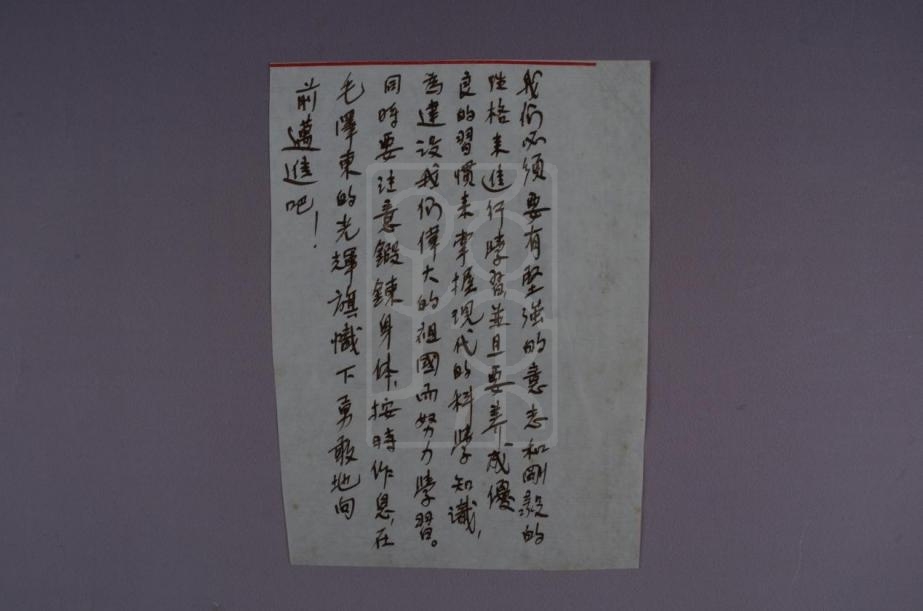 我们必須要有堅強的意志和剛毅的
性格来進行學習並且要养成優
良的習慣来掌握現代的科學知識，
為建设我们偉大的祖國而努力學習。
同時要注意鍛鍊身体，按時作息，在
毛澤東的光輝旗幟下勇敢地向
前邁進吧！